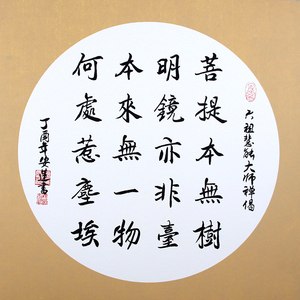 菩提本無樹
明鏡亦非臺
本來無一物
何處惹塵埃
六祖慧能大師禪偈
丁酉年安達書